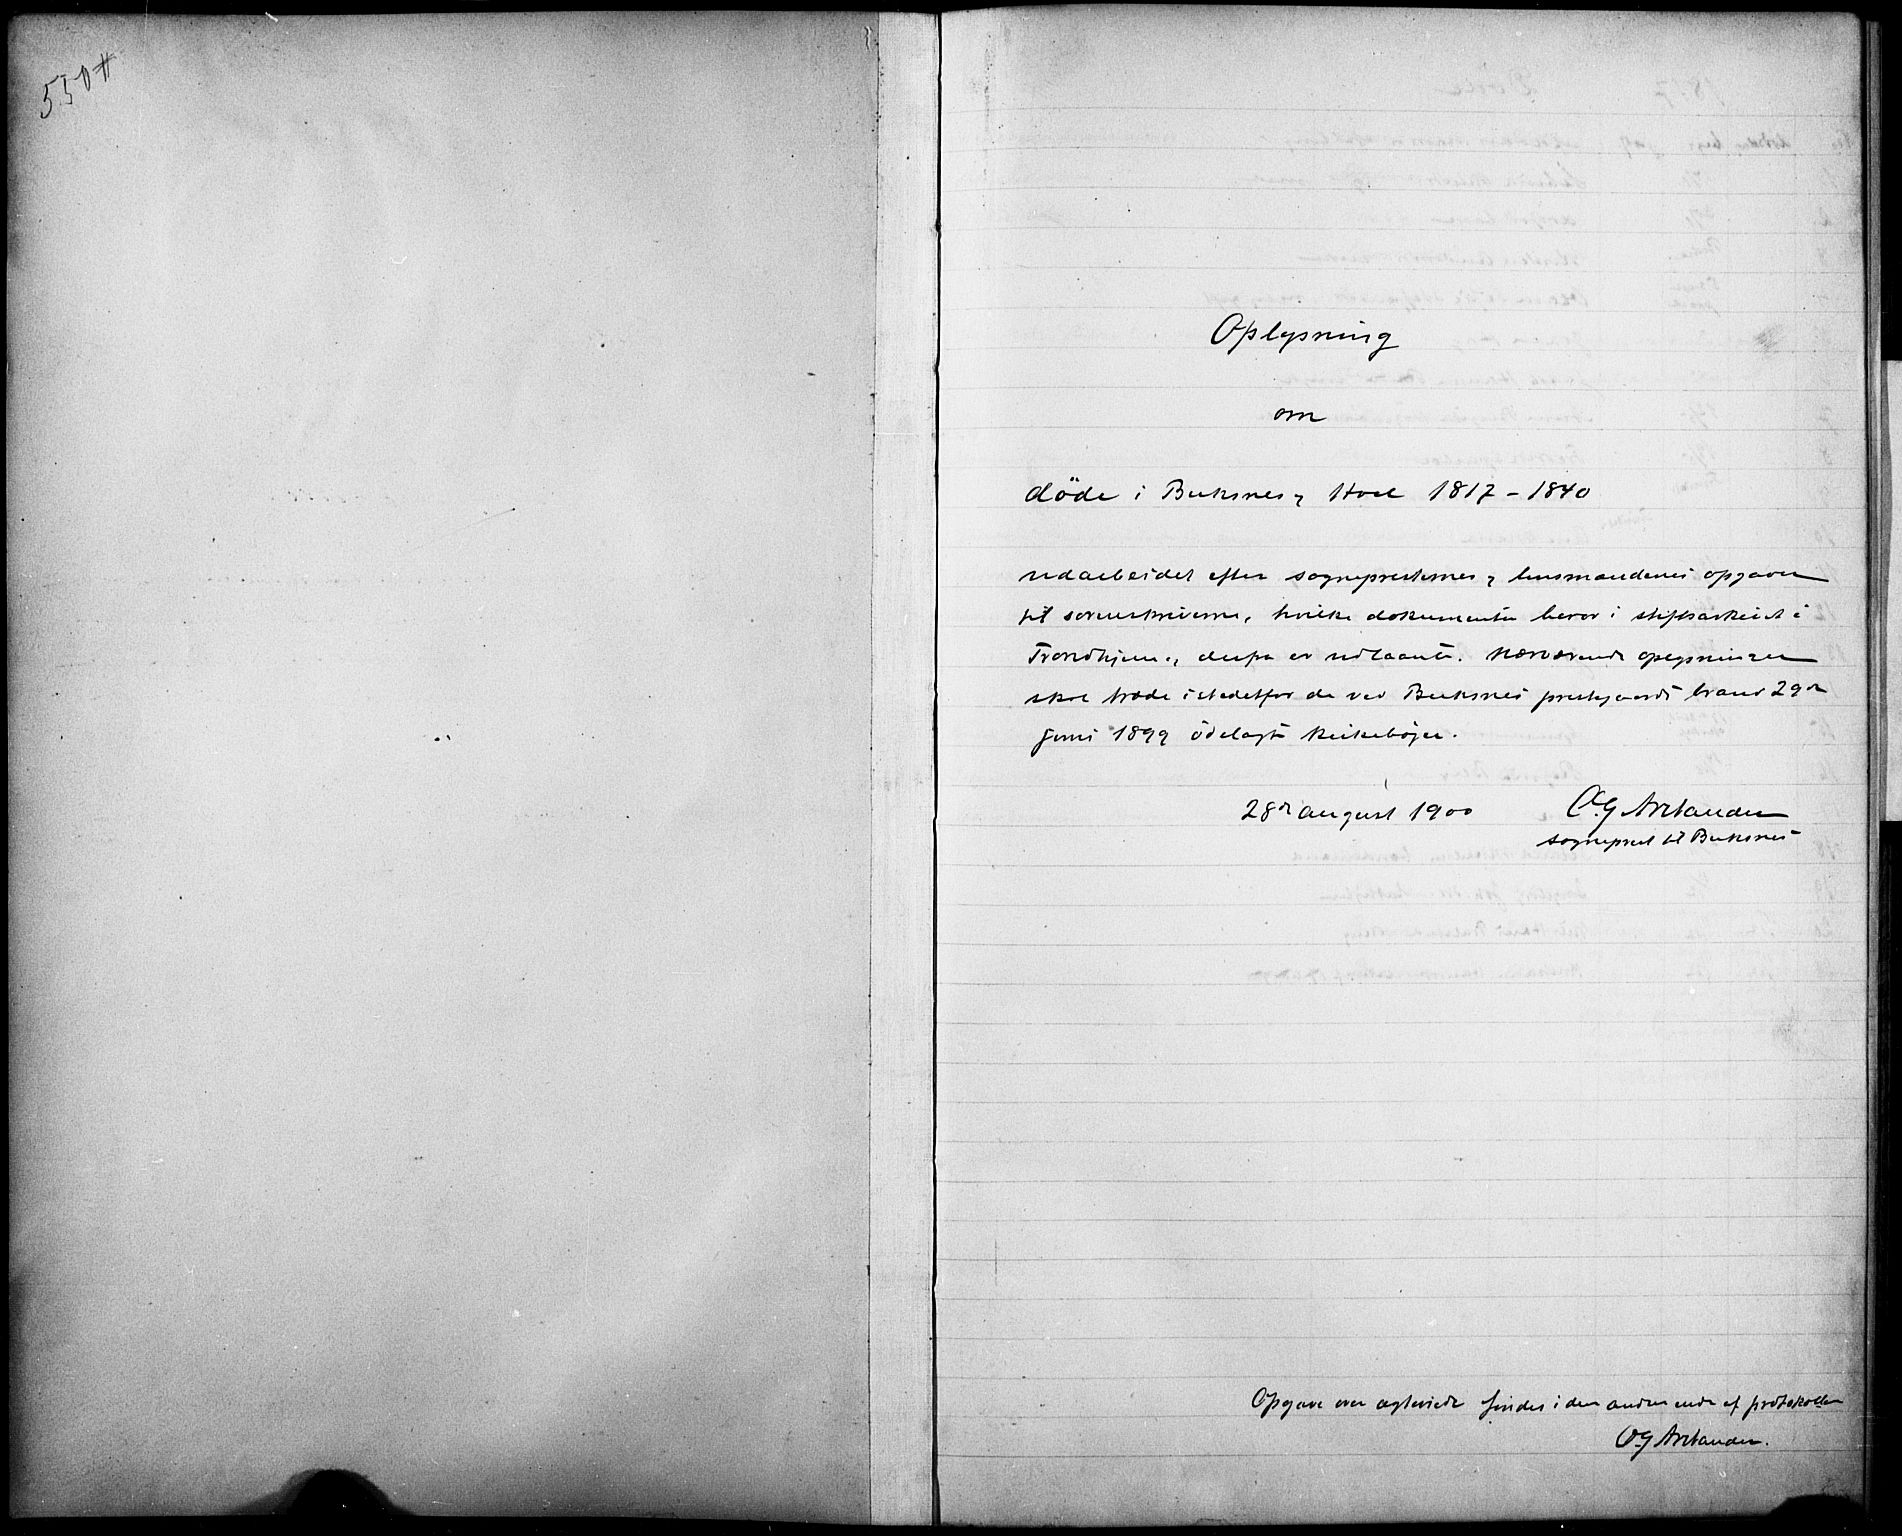 550#
Oplysning
om
døde i Buksnes og Hol 1817 - 1840
udarbeidet efter sognepresternes og lensmændenes opgaver
til sorenskriverne, hvilke dokumenter beror i stiftsarkivet i
Trondhjem og derfra er udlaante. Nærværende oplysninger
skal træde istedetfor de ved Buksnes prestegaards brand 29de
juni 1899 ödelagte kirkebøger.
28de august 1900
O. G. Arctander
sogneprest til Buksnes
Opgave over ægteviede findes i den anden ende af protokollen
O. G. Arctander.